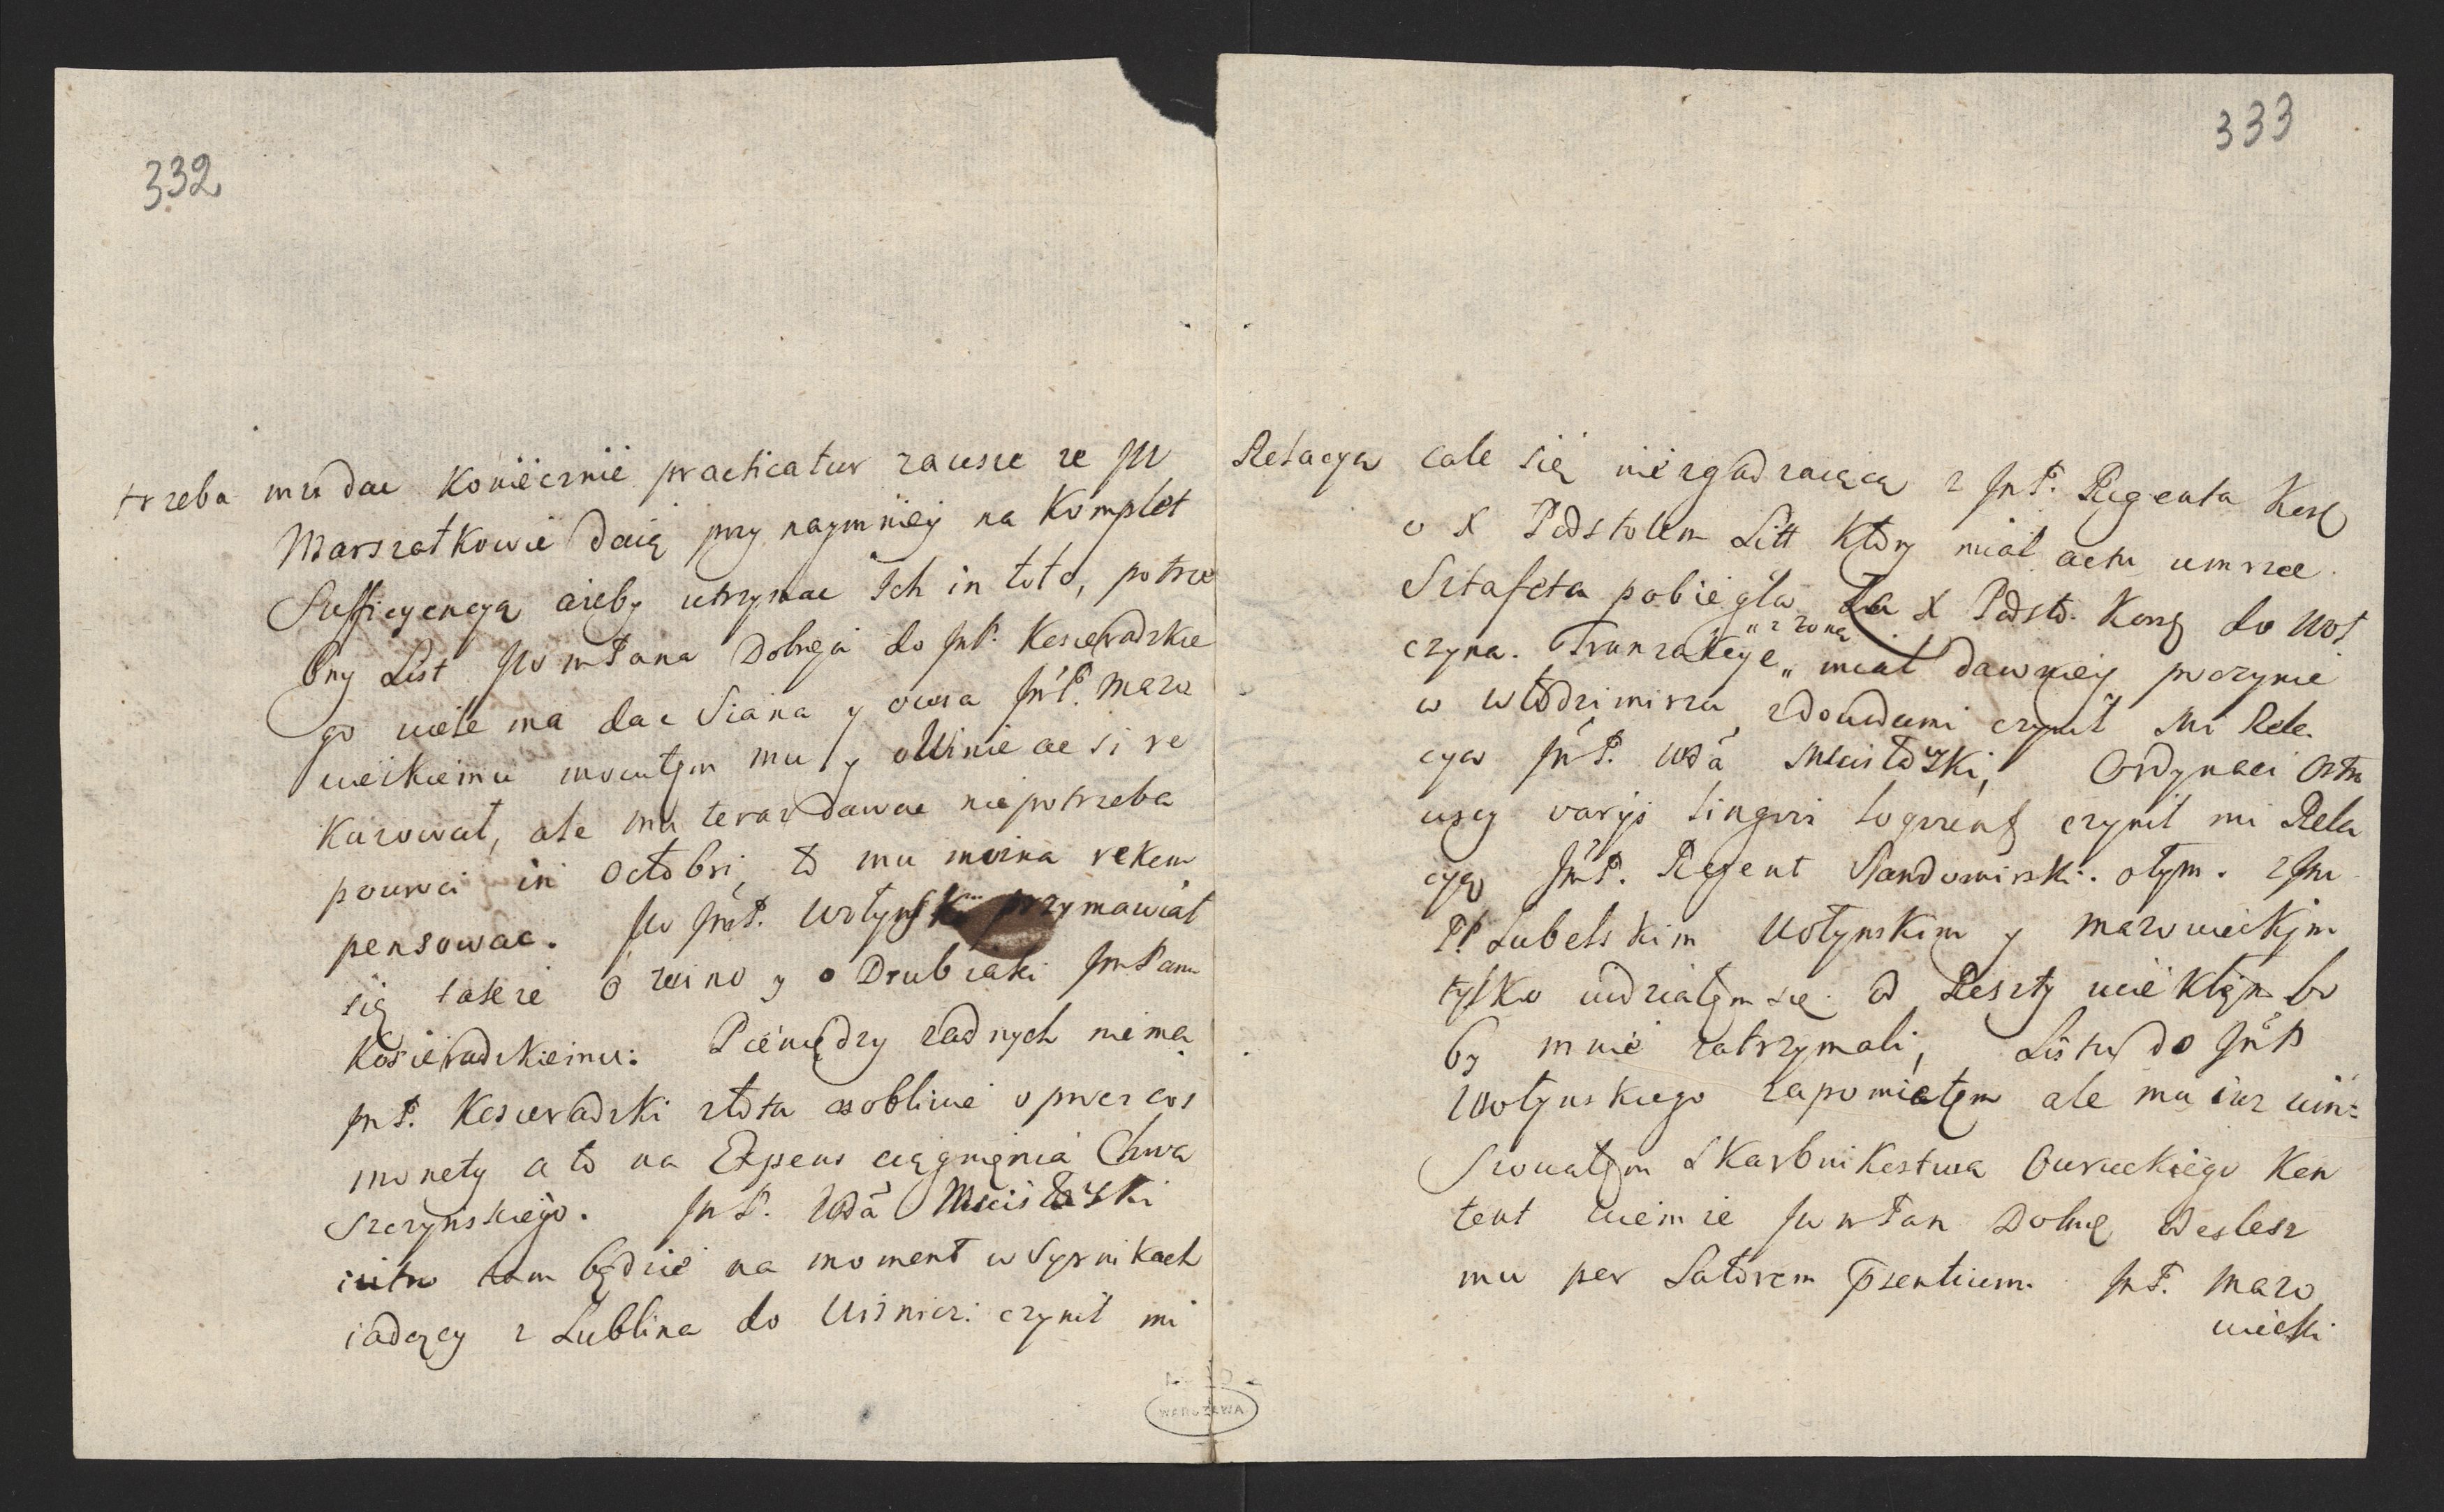 332
trzeba mu dac koniecznie practicatur zawsze ze JW
Marszałkowie daią przynaymniey na komplet
Sufficyencyą azeby utrzymac Ich in toto, potrze
bny List JW mPana Dobrgo do JmP. Kosieradzkie
go wiele ma dac Siana y owsa JmP. Mazo
wieckiemu mowiłem mu y o Winie ac si re
kuzował, ale mu teraz dawac niepotrzeba
powroci in Octobri, to mu mozna rekom
pensowac. JW JmP. Wołynski przymawiał
się takze o wino y o Drubiaki JmPanu
Kosieradzkiemu: Pieniędzy zadnych niema
JmP. Kosieradzki złota osobliwie oprocz cos
monety a to na Expens ciągnienia Chwa
Szczynskiego. JmP. Wdà Mscisławski
iutro tam będzie na moment w Syrnikach
iadący z Lublina do Wisnicz: czynił mi
333
Relacyą cale się niezgadzaiącą z JmP. Regenta Kor
o X Podstolem Litt który miał actu umrzec.
Sztafeta pobiegła za X Podsto. Kor do Woł
czyna. Tranzakcye „z zoną„ miał dawniey poczynic
w Włodzimirzu, z dowodami czynił mi Rela
cyą JmP. Wdà Mscisławski, Ordynaci Ostro
wscy varijs lingvis loqvunt czynił mi Rela
cyą JmP. Regent Sandomirski. o tym. z Jm
PP Lubelskim Wołynskim y Mazowieckim
tylko widziałem się. od Reszty uciekłem bo
by mnie zatrzymali, Listu do JmP
Wołynskiego zapomiałem ale mu iuz win=
Szowałem Skarbnikostwa Owruckiego kon
tent wiem ze JW mPan Dobrę odeslesz
mu per Latorem Psentium. JmP. Mazo
wiecki
WARSZAWA